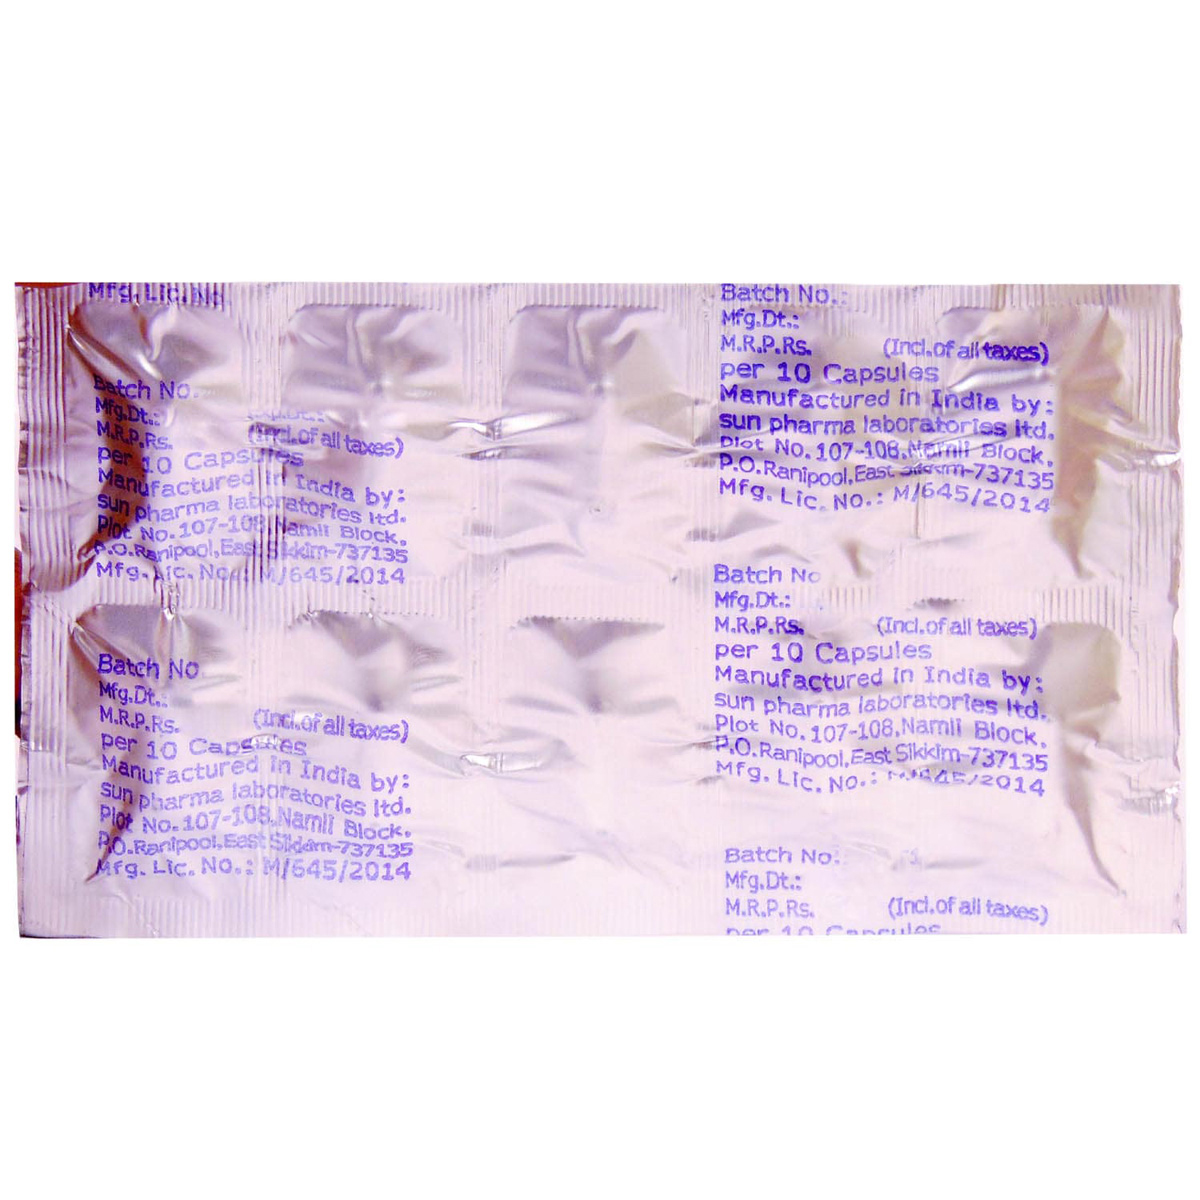 Mfg. Lic. No
Batch No.
Mfg.Dt.:
M.R.P.Rs. (Incl.of all taxes)
per 10 Capsules
Manufactured in India by:
sun pharma laboratories ltd.
Plot No.107-108,Namli Block,
P.O.Ranipool,East Sikkim-737135
Mfg. Lic. No.: M/645/2014
Batch No
Mfg.Dt.:
M.R.P.Rs. (Incl.of all taxes)
per 10 Capsules
Manufactured in India by:
sun pharma laboratories ltd.
Plot No.107-108,Namli Block,
P.O.Ranipool,East Sikkim-737135
Mfg. Lic. No.: M/645/2014
Batch No.:
Mfg.Dt.:
M.R.P.Rs. (Incl.of all taxes)
per 10 Capsules
Manufactured in India by:
sun pharma laboratories ltd.
Plot No.107-108,Namli Block,
P.O.Ranipool,East Sikkim-737135
Mfg. Lic. No.: M/645/2014
Batch No
Mfg.Dt.:
M.R.P.Rs. (Incl.of all taxes)
per 10 Capsules
Manufactured in India by:
sun pharma laboratories ltd.
Plot No.107-108,Namli Block,
P.O.Ranipool,East Sikkim-737135
Mfg. Lic. No.: M/645/2014
Batch No.:
Mfg.Dt.:
M.R.P.Rs. (Incl.of all taxes)
per 10 Capsules